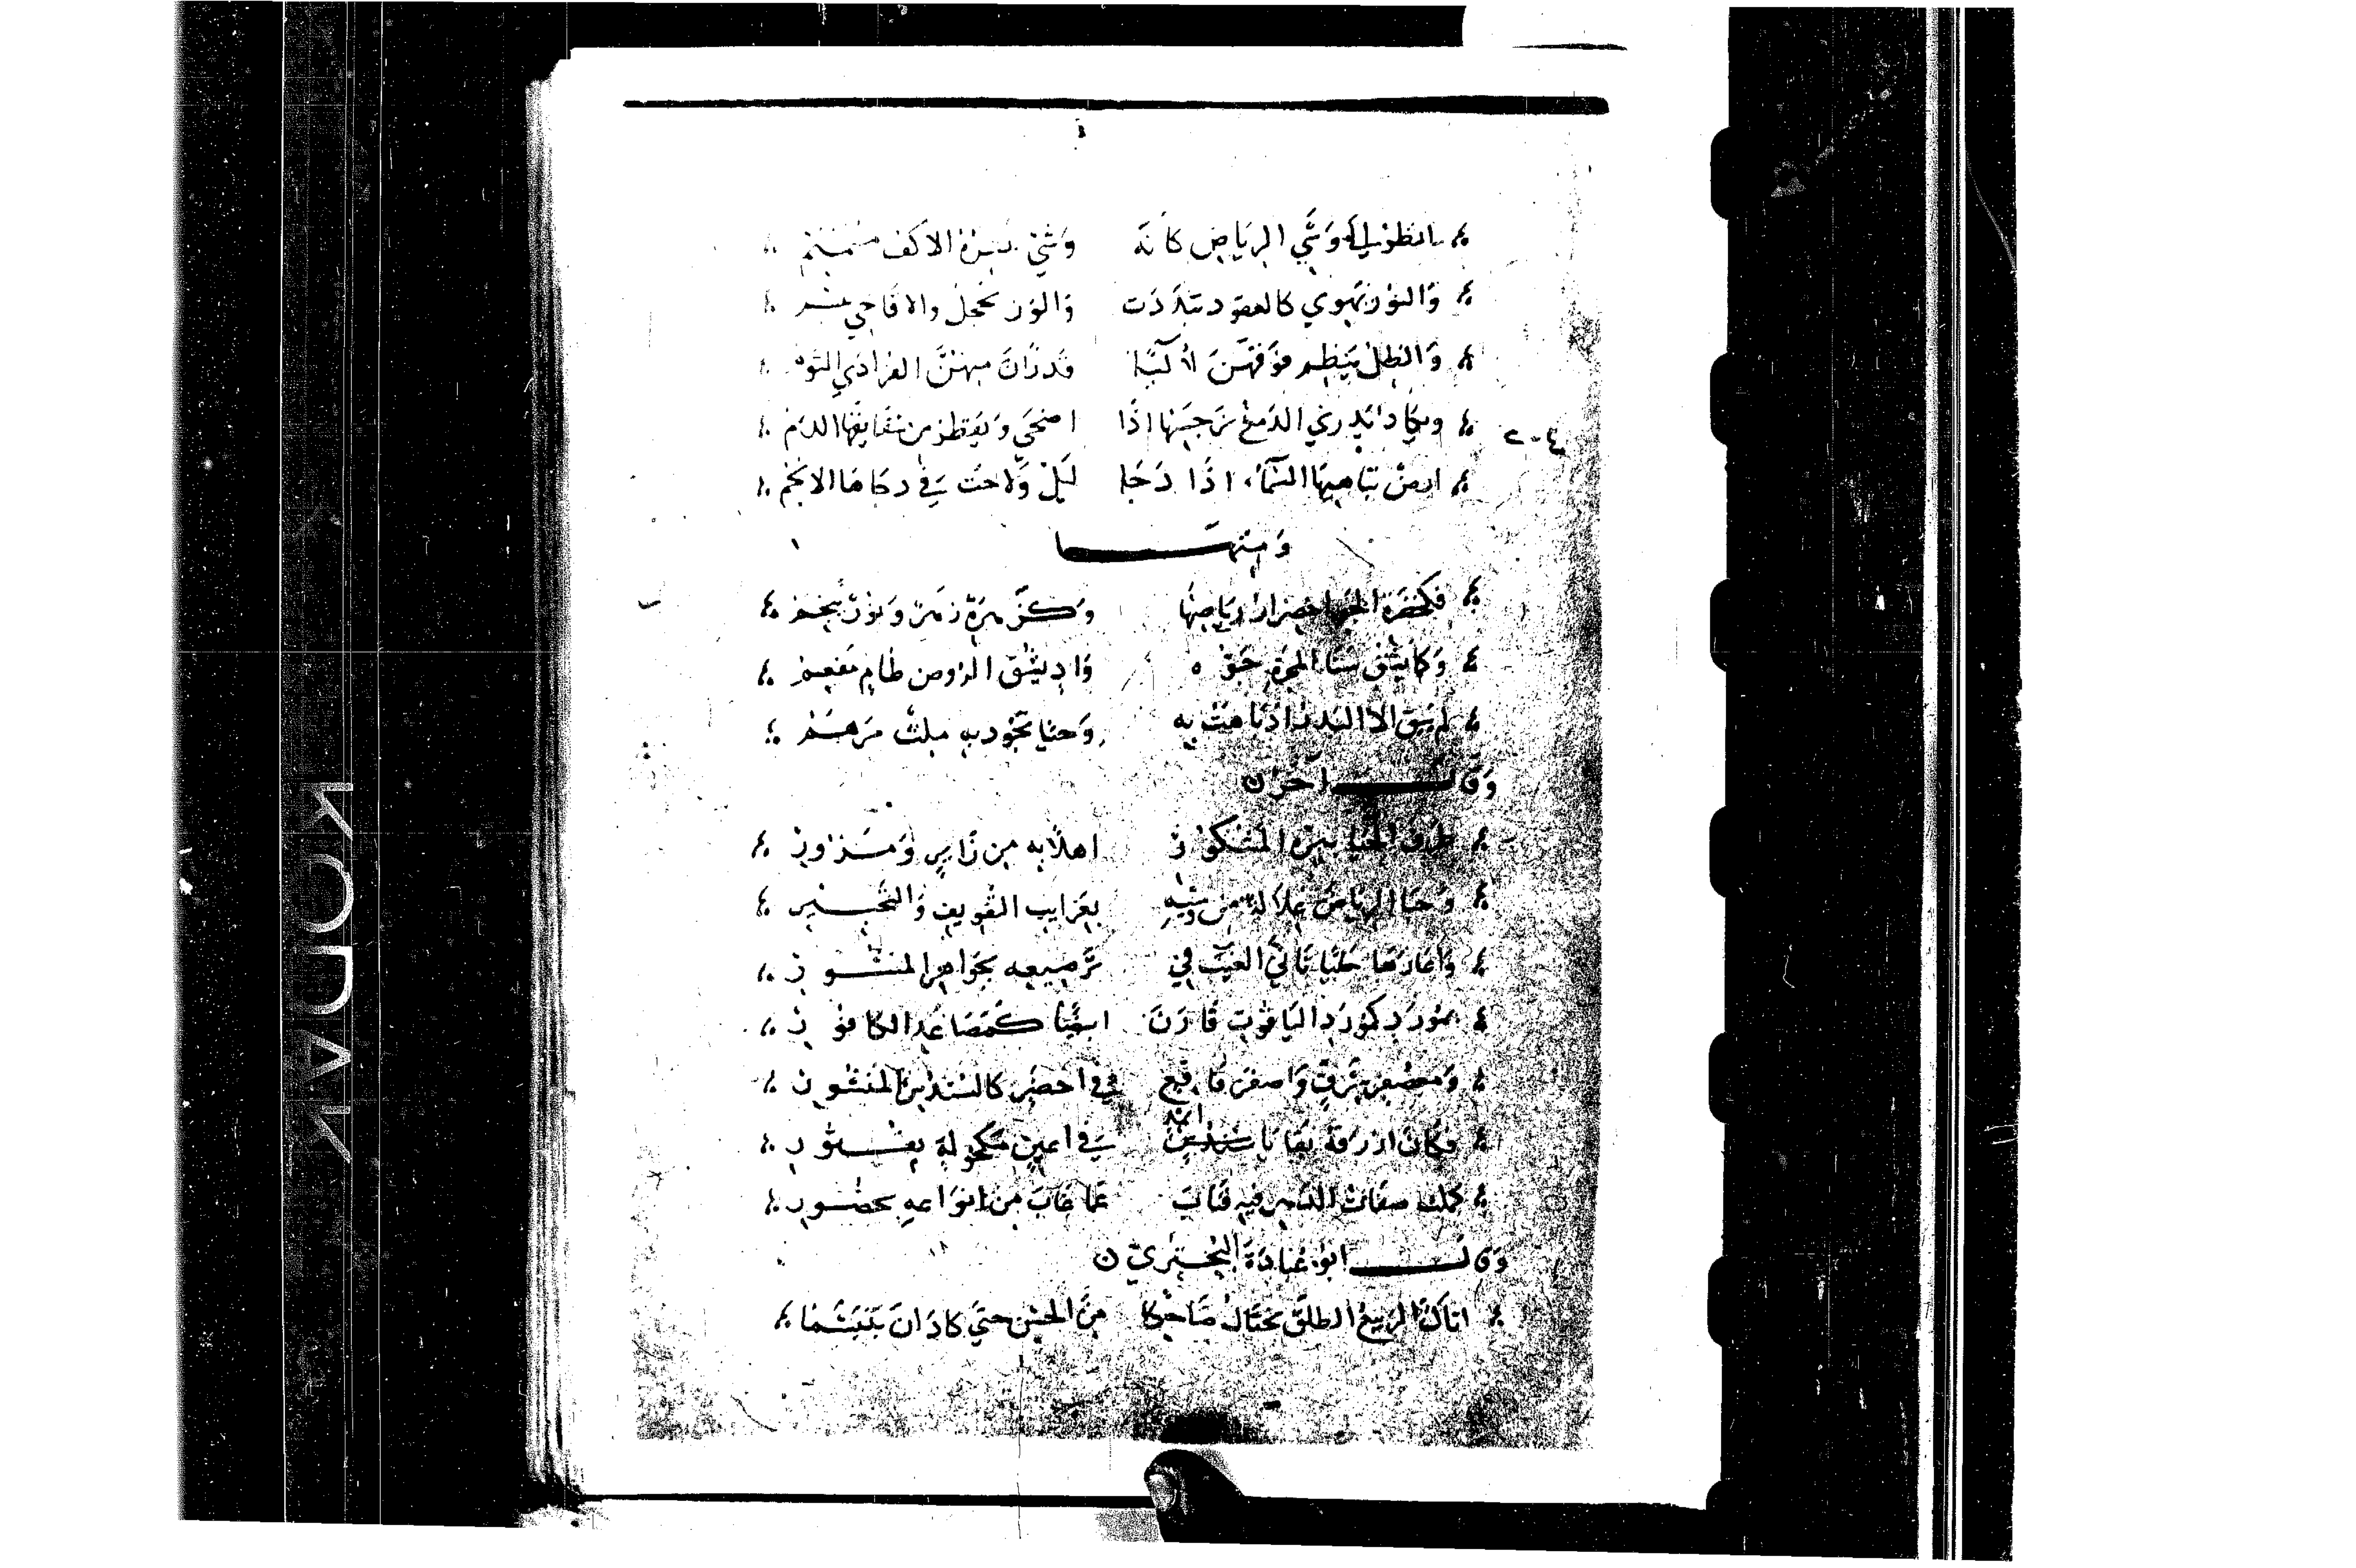 انظر إلى وَشَّي الرياض كأنه وَشْيٌ بنشره الاكف منمنم
وَالنوْر يهوي كالعقود تبدّدت وَالورد يخجل والاقاحي
وَالطل ينظم فوقهنّ لآلئا قد زان منهنّ الفرادي التوم
ويكاد يذري الدمع نرجسها اذا اضحي وَيقطر من شقايقها الدم
ارض تباهيها السمآء اذا دَجا ليل وَلاحت في دجاها الانجم
وَمنها
اخضرار رياضها وَكزهره زهر وَنور ينجم
وَكما يشق سنا المجرة جوّه وَادٍ يشق الروض طامٍ مفعم
لم يبق الا البدر اذ باهت به وَحيا يجود به ملث مرهم
وَقال آخر
طرق الحيا ببرّه المشكور اهلا به من زاير وَمزور
وَحبا الرياض غلالة من وشيه بغرايب التفويف وَالتحبير
وَاعارها حليا تأنق الغيث في ترصيعه بجواهر المنثور
بمورّد كمورّد الياقوت قارن ابيضا كمصاعد الكافور
وَمعصفر شرق وَاصفر فاقع في اخضر كالسندس المنشور
وَكان ازرقه بقايا اثمد في اعين مكحولة بفتور
كملت صفات الزهر فيه فناب عما غاب من انواعه بحضور
وَقال ابو عبادة البحتري
اتاك الربيع الطلق يختال ضاحكا من الحسن حتي كاد ان يتبسّما